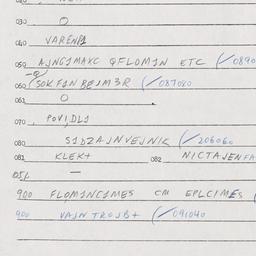 030 O
040 VARENPI
050 AJNCIMAXC QFLOMIN ETC (/0890
060 (SOKFIN BEJM3R (/087080
061 O
070 , POVI,DLI
080 SIDZAJNVEJNIK (/206060
081 KLEK+ 082 NICTAJENFA
051 —
900 FLOMINCIMES CM EPLCIMES (
900 VAJN TROJB+ (/091040